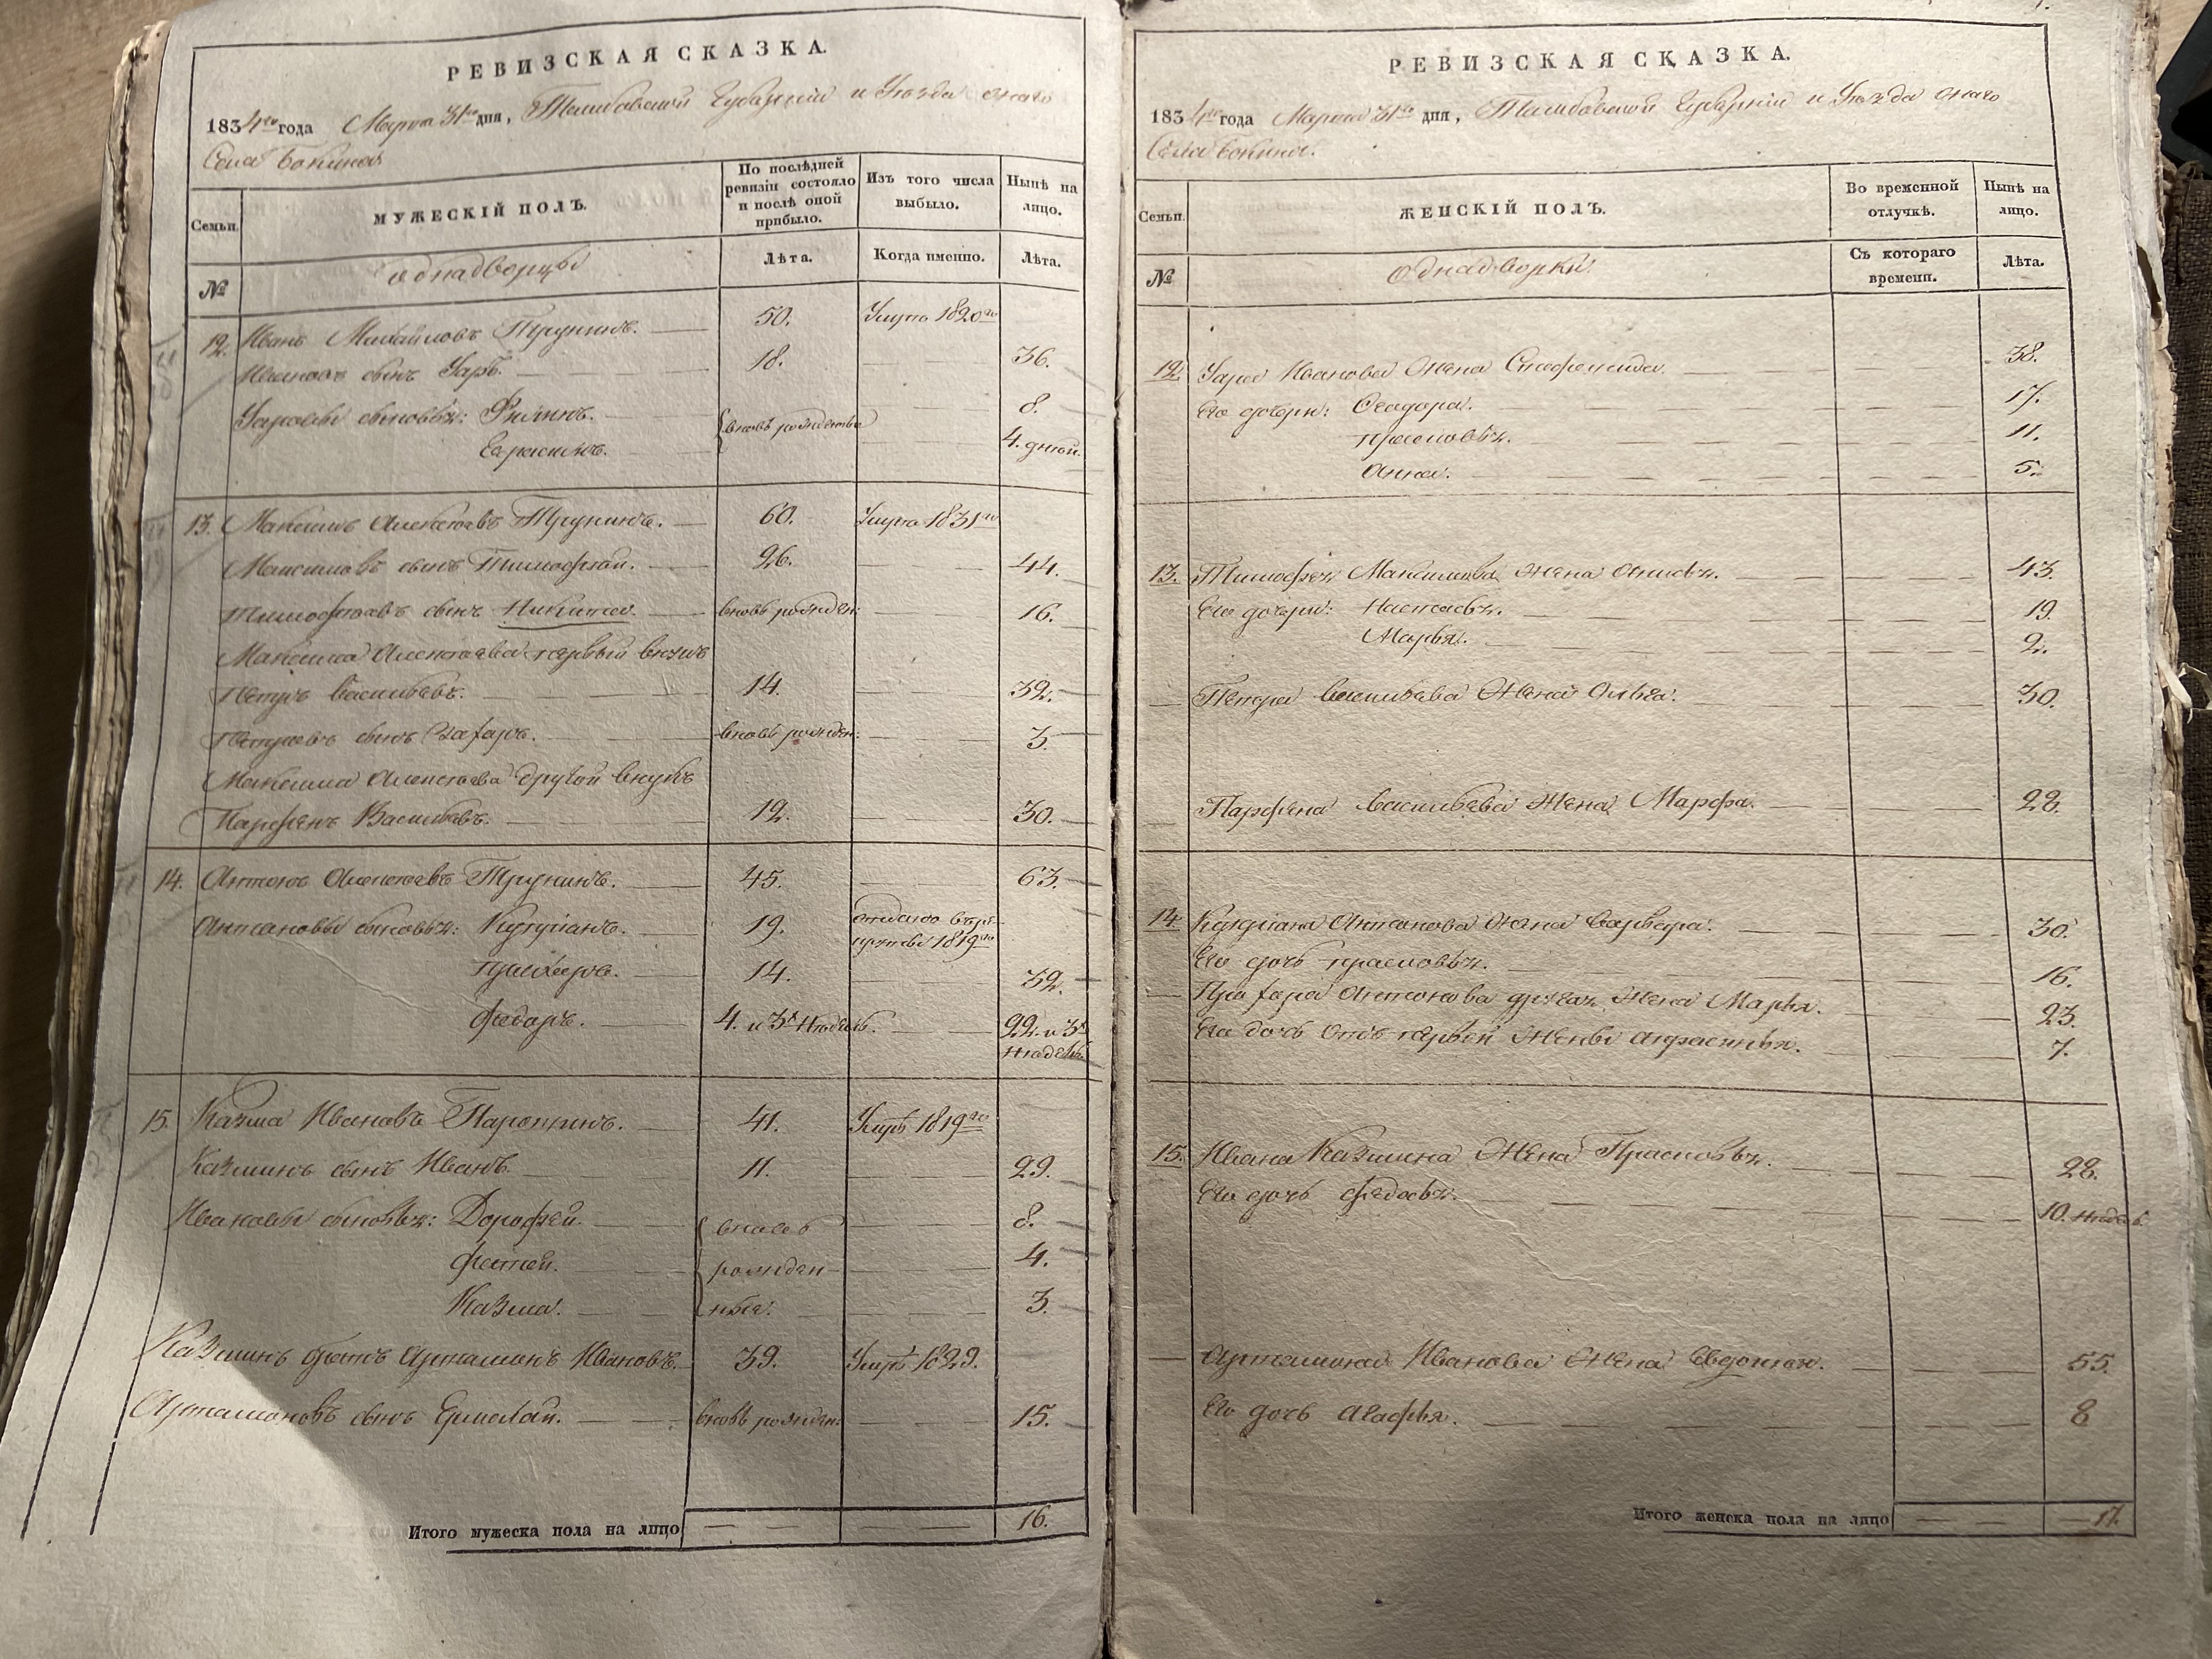 РЕВИЗСКАЯ СКАЗКА.
1834го года Марта 31го дня, Тамбовской Губернии и Уезда онаго
Села Бокина
Семьи.
МУЖЕСКІЙ ПОЛЪ.
По послѣдней ревизіи состояло и послѣ оной прибыло.
Изъ того числа выбыло.
Нынѣ на лицо.
№
однадворцы
Лѣта.
Когда именно.
Лѣта.
12. Иванъ Михайловъ Трунинъ. 50. Умре 1820го
Ивановъ сынъ Уаръ. 18. 36.
Уаровы сыновья: Филипъ. вновь рождены 8.
Герасимъ. 4. дней.
13. Максимъ Алексѣевъ Трунинъ. 60. Умре 1831го
Максимовъ сынъ Тимофѣй. 26. 44.
Тимофѣевъ сынъ Никита. вновь рожден: 16.
Максима Алексѣева первый внукъ
Петръ Васильевъ. 14. 32.
Петровъ сынъ Захаръ. вновь рожден: 3.
Максима Алексѣева другой внукъ
Парфенъ Васильевъ. 12. 30.
14. Антонъ Алексѣевъ Трунинъ. 45. 63.
Антоновы сыновья: Купріянъ. 19. отдано в рекруты 1819го
Прохоръ. 14. 32.
Федоръ. 4. и 3х Недель. 22. и 3х неделъ
15. Казма Ивановъ Паропкинъ. 41. Умръ 1819го
Казминъ сынъ Иванъ. 11. 29.
Ивановы сыновья: Дорофей. вновь 8.
Фатей. рожден- 4.
Казма. ныя. 3.
Казминъ братъ Артамонъ Ивановъ. 39. Умръ 1829.
Артамоновъ сынъ Ермолай. вновь рожден: 15.
Итого мужеска пола на лицо 16.
РЕВИЗСКАЯ СКАЗКА.
1834го года Марта 31го дня, Тамбовской Губернии и Уезда онаго
Села Бокина.
Семьи.
ЖЕНСКІЙ ПОЛЪ.
Во временной отлучкѣ.
Нынѣ на лицо.
№
однадворки
Съ котораго времени.
Лѣта.
12. Уара Иванова Жена Степонида. 38.
Его дочери: Феодора. 17.
Прасковья. 11.
Анна. 5.
13. Тимофея Максимова Жена Анисья. 43.
Его дочери: Настасья. 19.
Марья. 2.
Петра Васильева Жена Ольга. 30.
Парфена Васильева Жена Марфа. 28.
14. Купріяна Антонова Жена Варвара. 30.
Его дочь Прасковья. 16.
Прохора Антонова другая Жена Марья. 23.
Его дочь отъ первой Жены Афросинья. 7.
15. Ивана Казмина Жена Прасковья. 28.
Его дочь Федосья. 10. недель
Артамона Иванова Жена Евдокия. 55.
Его дочь Агафья. 8
Итого женска пола на лицо 17.